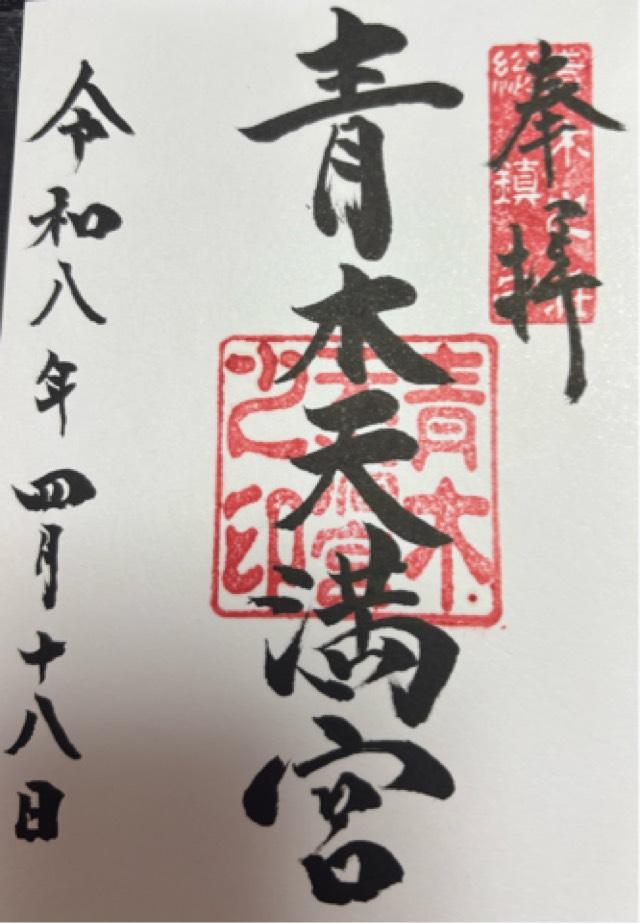 奉拝
青木天満宮
令和八年四月十八日
青木
之印